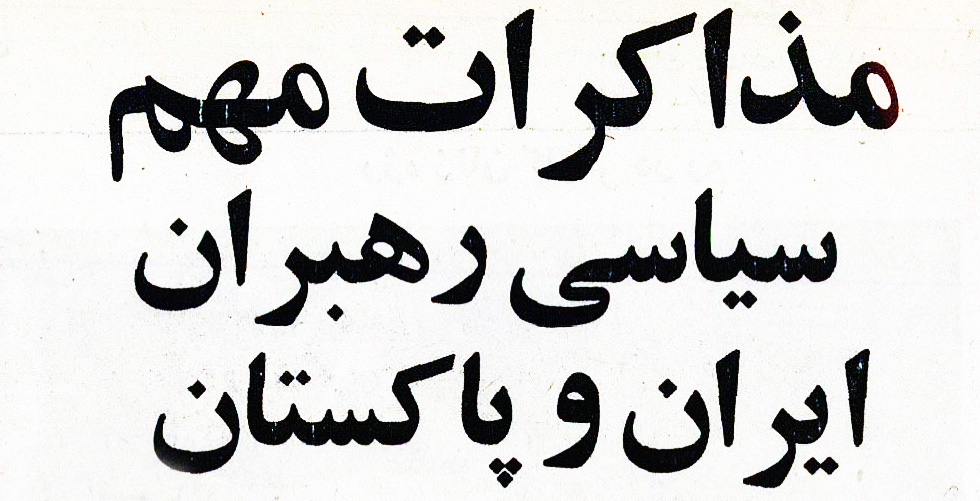 مذاکرات مهم
سیاسی رهبران
ایران و پاکستان